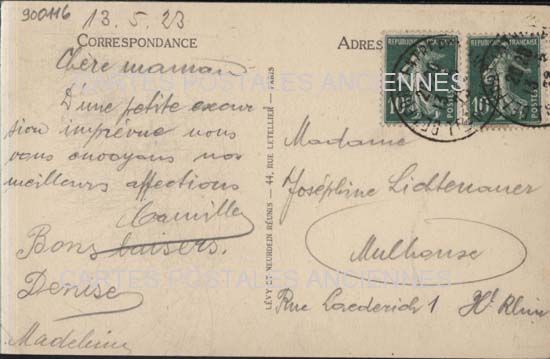 900116
13.5.23
CORRESPONDANCE
Chère maman
D'une petite excur
sion imprévue nous
vous envoyons nos
meilleurs affections
Camille
Bons baisers.
Denise
Madeleine
LÉVY & NEURDEIN RÉUNIS — 44, RUE LETELLIER — PARIS
ADRES
RÉPUBLIQUE FRANÇAISE
10
POSTES
RÉPUBLIQUE FRANÇAISE
10
POSTES
Madame
Joséphine Lichtenauer
Mulhouse
Rue 1 Ht Rhin
CARTES POSTALES ANCIENNES
CARTES POSTALES ANCIENNES